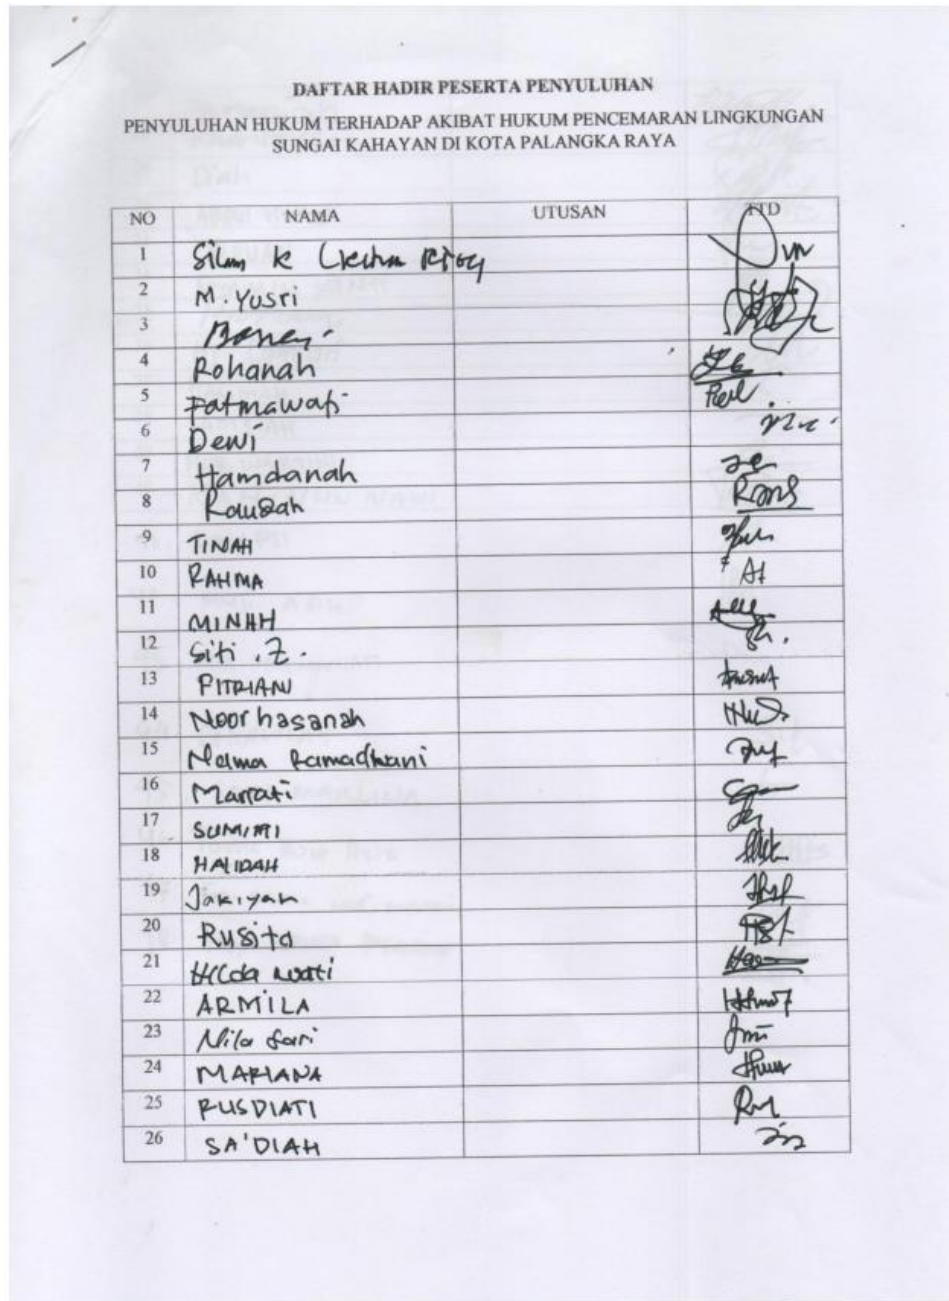 DAFTAR HADIR PESERTA PENYULUHAN
PENYULUHAN HUKUM TERHADAP AKIBAT HUKUM PENCEMARAN LINGKUNGAN
SUNGAI KAHAYAN DI KOTA PALANGKA RAYA
NO NAMA UTUSAN TTD
1
2 M. Yusri
3
4 Rohanah
5 Fatmawati
6 Dewi
7 Hamdanah
8 Rauzah
9 TINAH
10 RAHMA
11 MINAH
12 Siti . Z .
13 PITRIANI
14 Noor hasanah
15 Ramadhani
16 Marrati
17
18 HALIDAH
19 Jakiyah
20 Rusita
21 Hilda wati
22 ARMILA
23 Nila Sari
24 MARIANA
25 RUSDIATI
26 SA'DIAH